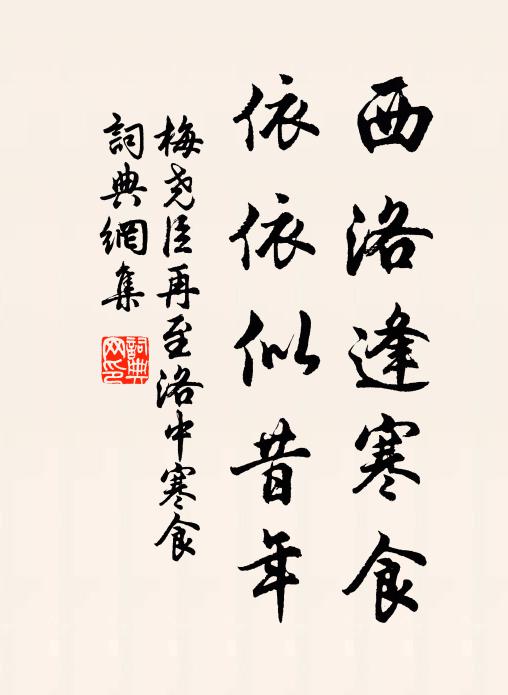 西洛逢寒食
依依似昔年
梅尧臣再至洛中寒食
詞典網集
詞典网印